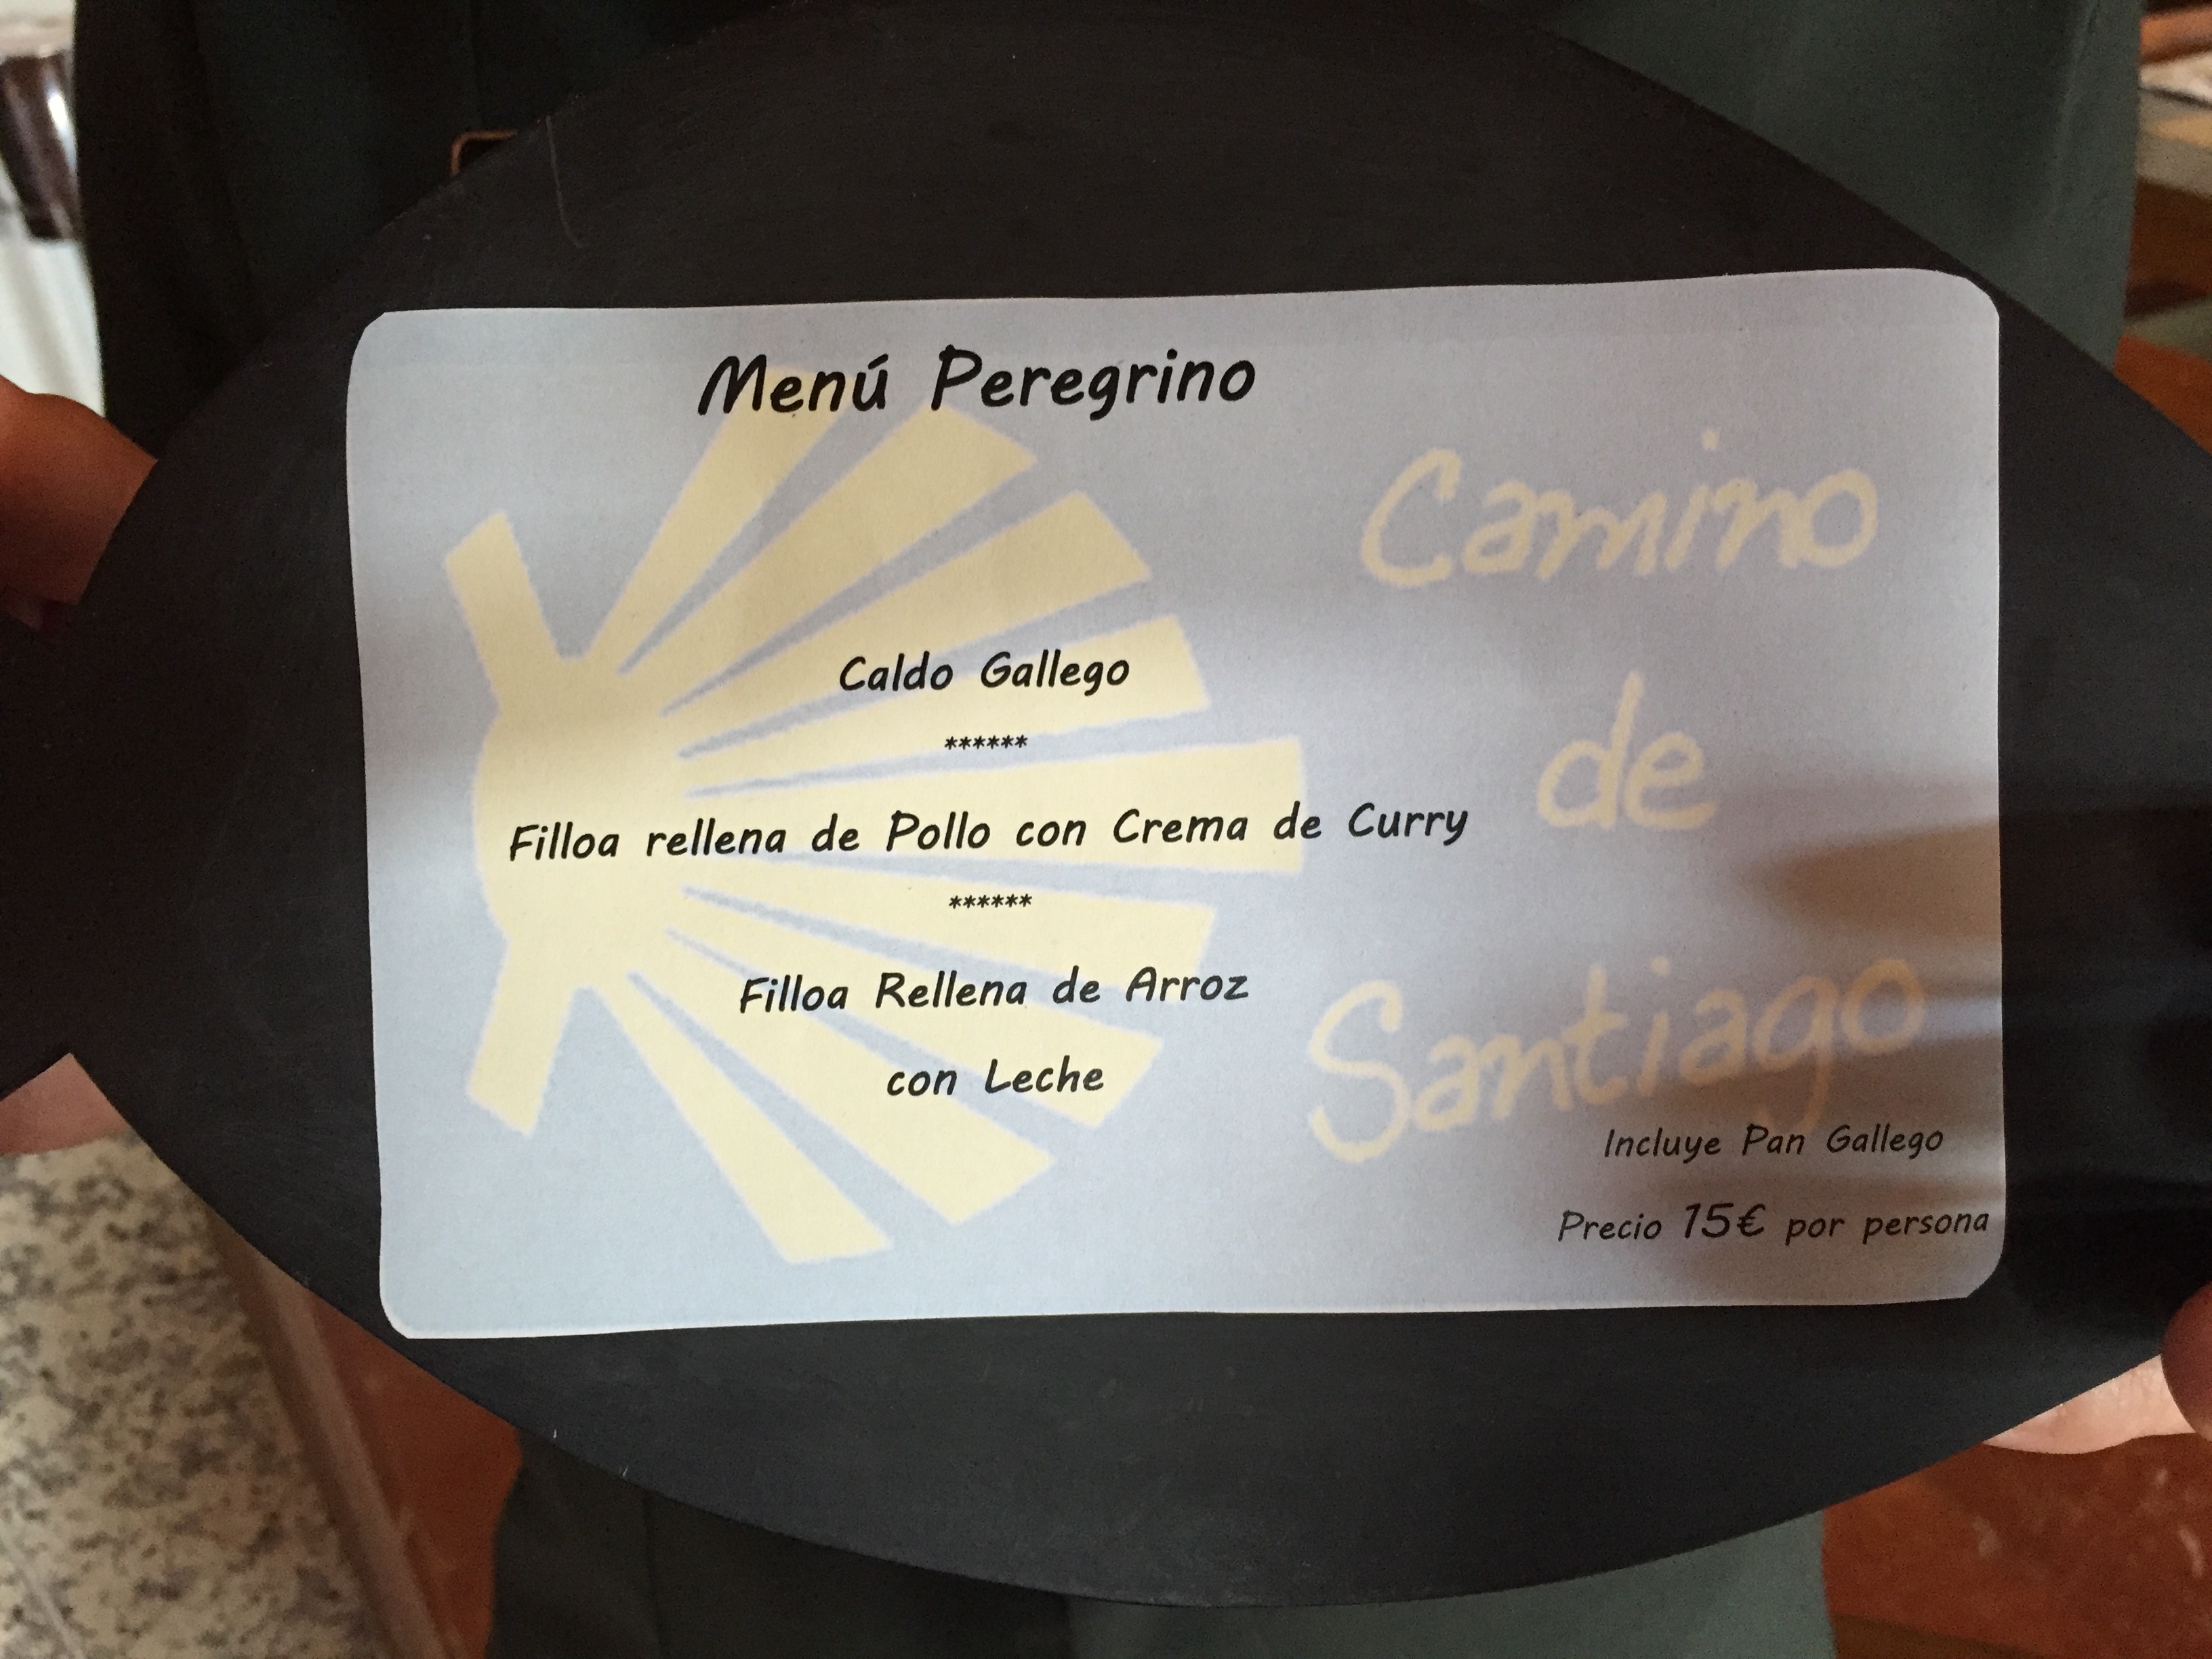 Menú Peregrino
Camino
de
Santiago
Caldo Gallego
******
Filloa rellena de Pollo con Crema de Curry
******
Filloa Rellena de Arroz
con Leche
Incluye Pan Gallego
Precio 15€ por persona